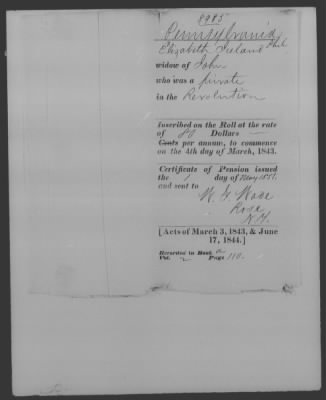 8985
Pennsylvania
Elizabeth Ireland Phil
widow of John
who was a private
in the Revolution
Inscribed on the Roll at the rate
of 80 Dollars
Cents per annum, to commence
on the 4th day of March, 1843.
Certificate of Pension issued
the 1 day of May 1851
and sent to
Rose
N.Y.
[Acts of March 3, 1843, & June
17, 1844.]
Recorded in Book A
Vol. 2 Page 110.